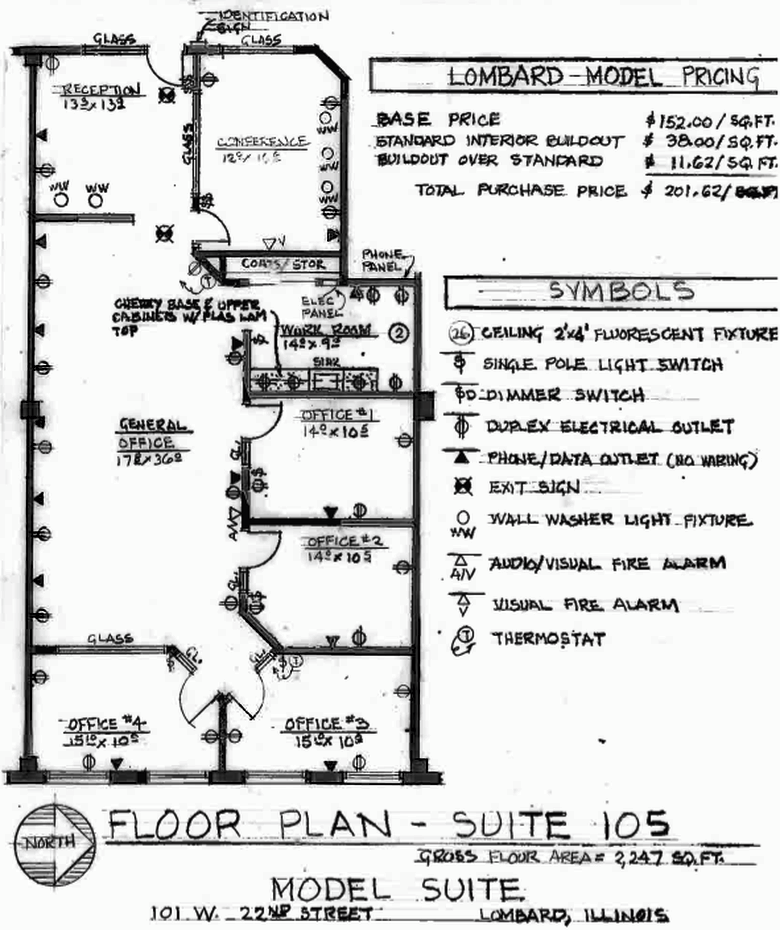 IDENTIFICATION
SIGN
GLASS
GLASS
RECEPTION
13⁹ x 13⁹
GLASS
CONFERENCE
WW
WW
WW
WW WW
V
COATS/STOR
T
PHONE
PANEL
ELEC
PANEL
CHERRY BASE & UPPER
CABINETS W/ PLAS LAM
TOP
WORK ROOM
2
SINK
GENERAL
OFFICE
OFFICE #1
14⁰ x 10⁵
GL.
A/V
OFFICE #2
14⁰ x 10⁵
GL.
GLASS
GL.
GL.
T
OFFICE #4
15¹⁰ x 10⁵
OFFICE #3
LOMBARD-MODEL PRICING
BASE PRICE $152.00/SQ.FT.
STANDARD INTERIOR BUILDOUT $ 38.00/SQ.FT.
BUILDOUT OVER STANDARD $ 11.62/SQ.FT.
TOTAL PURCHASE PRICE $ 201.62/SQ.FT.
SYMBOLS
26 CEILING 2'x4' FLUORESCENT FIXTURE
$ SINGLE POLE LIGHT SWITCH
$D DIMMER SWITCH
DUPLEX ELECTRICAL OUTLET
PHONE/DATA OUTLET (NO WIRING)
EXIT SIGN
WW WALL WASHER LIGHT FIXTURE
A/V AUDIO/VISUAL FIRE ALARM
V VISUAL FIRE ALARM
T THERMOSTAT
NORTH
FLOOR PLAN - SUITE 105
GROSS FLOOR AREA = 2,247 SQ.FT.
MODEL SUITE
101 W. 22ND STREET LOMBARD, ILLINOIS